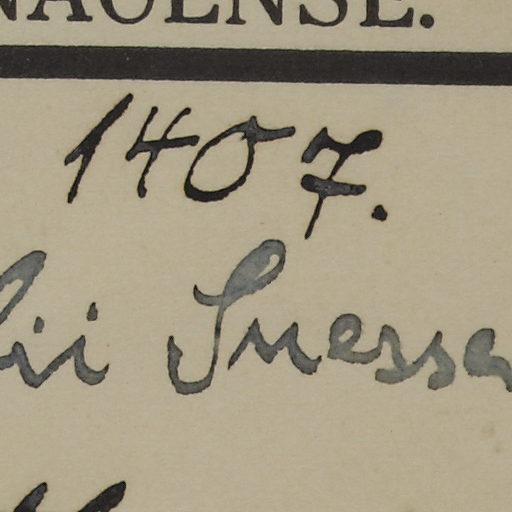 NAUENSE.
1407.
lii Suesse